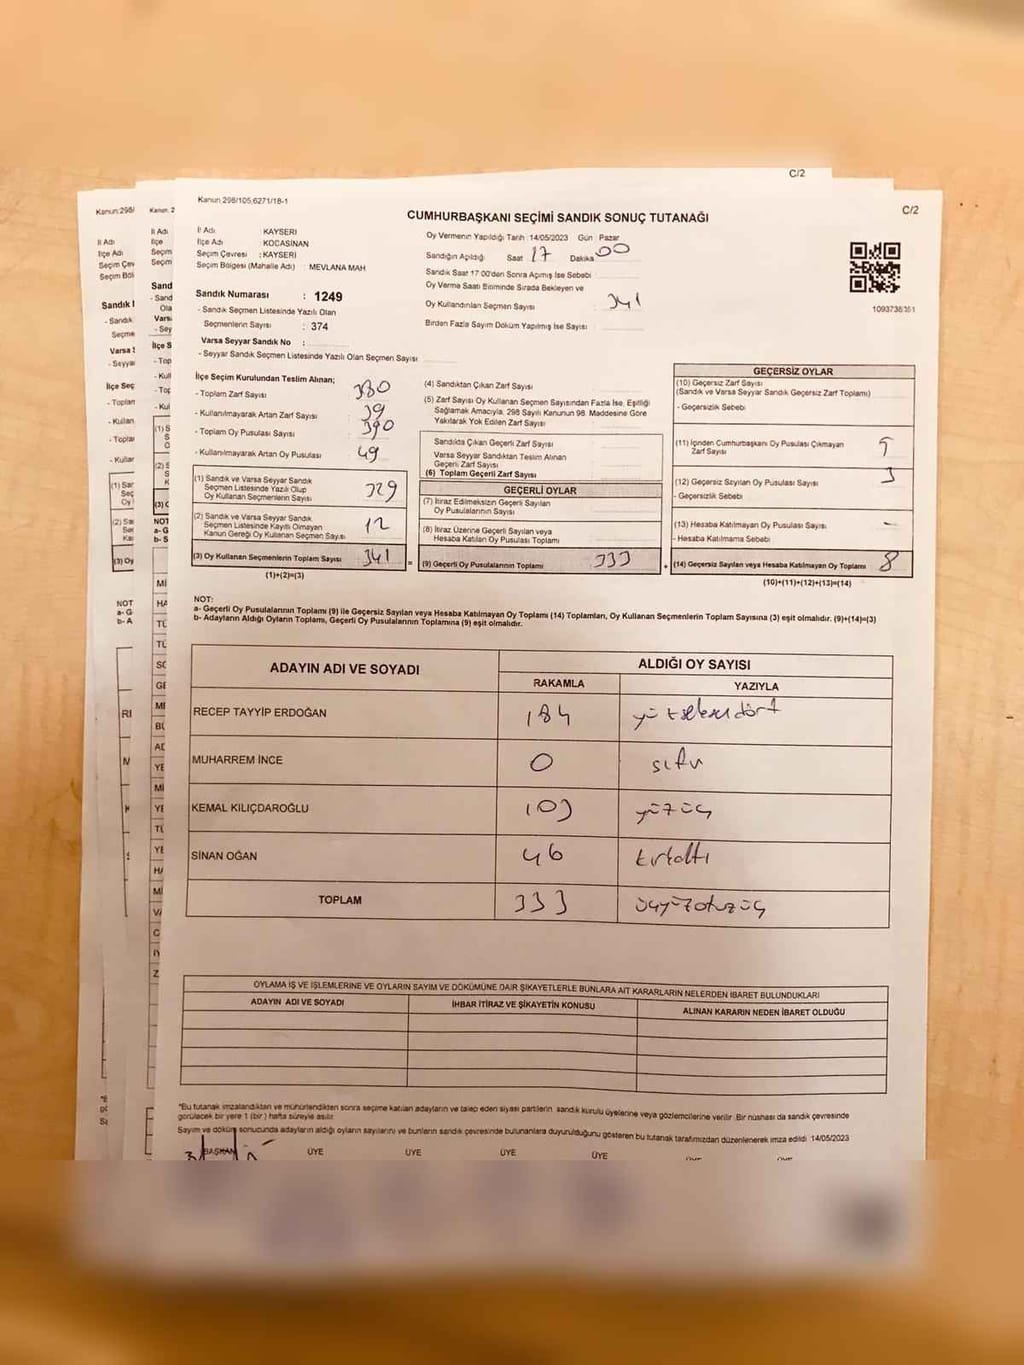 C/2
Kanun:298/105,6271/18-1
C/2
CUMHURBAŞKANI SEÇİMİ SANDIK SONUÇ TUTANAĞI
İl Adı : KAYSERİ
İlçe Adı : KOCASİNAN
Seçim Çevresi : KAYSERİ
Seçim Bölgesi (Mahalle Adı) : MEVLANA MAH
Sandık Numarası : 1249
- Sandık Seçmen Listesinde Yazılı Olan
Seçmenlerin Sayısı : 374
Varsa Seyyar Sandık No :
- Seyyar Sandık Seçmen Listesinde Yazılı Olan Seçmen Sayısı
Oy Vermenin Yapıldığı Tarih :14/05/2023 Gün : Pazar
Sandığın Açıldığı Saat 17 Dakika 00
Sandık Saat 17:00'den Sonra Açılmış İse Sebebi
Oy Verme Saati Bitiminde Sırada Bekleyen ve
Oy Kullandırılan Seçmen Sayısı : 341
Birden Fazla Sayım Döküm Yapılmış İse Sayısı :
1093736361
İlçe Seçim Kurulundan Teslim Alınan;
- Toplam Zarf Sayısı : 380
- Kullanılmayarak Artan Zarf Sayısı : 39
- Toplam Oy Pusulası Sayısı : 390
- Kullanılmayarak Artan Oy Pusulası : 49
(1) Sandık ve Varsa Seyyar Sandık
Seçmen Listesinde Yazılı Olup
Oy Kullanan Seçmenlerin Sayısı 329
(2) Sandık ve Varsa Seyyar Sandık
Seçmen Listesinde Kayıtlı Olmayan
Kanun Gereği Oy Kullanan Seçmen Sayısı 12
(3) Oy Kullanan Seçmenlerin Toplam Sayısı 341
(1)+(2)=(3)
(4) Sandıktan Çıkan Zarf Sayısı
(5) Zarf Sayısı Oy Kullanan Seçmen Sayısından Fazla İse, Eşitliği
Sağlamak Amacıyla, 298 Sayılı Kanunun 98. Maddesine Göre
Yakılarak Yok Edilen Zarf Sayısı
Sandıkta Çıkan Geçerli Zarf Sayısı
Varsa Seyyar Sandıktan Teslim Alınan
Geçerli Zarf Sayısı
(6) Toplam Geçerli Zarf Sayısı
GEÇERLİ OYLAR
(7) İtiraz Edilmeksizin Geçerli Sayılan
Oy Pusulalarının Sayısı
(8) İtiraz Üzerine Geçerli Sayılan veya
Hesaba Katılan Oy Pusulası Toplamı
= (9) Geçerli Oy Pusulalarının Toplamı 333
GEÇERSİZ OYLAR
(10) Geçersiz Zarf Sayısı
(Sandık ve Varsa Seyyar Sandık Geçersiz Zarf Toplamı)
- Geçersizlik Sebebi
(11) İçinden Cumhurbaşkanı Oy Pusulası Çıkmayan
Zarf Sayısı 5
(12) Geçersiz Sayılan Oy Pusulası Sayısı 3
- Geçersizlik Sebebi
(13) Hesaba Katılmayan Oy Pusulası Sayısı -
- Hesaba Katılmama Sebebi
+ (14) Geçersiz Sayılan veya Hesaba Katılmayan Oy Toplamı 8
(10)+(11)+(12)+(13)=(14)
NOT:
a- Geçerli Oy Pusulalarının Toplamı (9) ile Geçersiz Sayılan veya Hesaba Katılmayan Oy Toplamı (14) Toplamları, Oy Kullanan Seçmenlerin Toplam Sayısına (3) eşit olmalıdır. (9)+(14)=(3)
b- Adayların Aldığı Oyların Toplamı, Geçerli Oy Pusulalarının Toplamına (9) eşit olmalıdır.
ADAYIN ADI VE SOYADI
ALDIĞI OY SAYISI
RAKAMLA YAZIYLA
RECEP TAYYİP ERDOĞAN 184 yüzseksendört
MUHARREM İNCE 0 sıfır
KEMAL KILIÇDAROĞLU 103 yüzüç
SİNAN OĞAN 46 kırkaltı
TOPLAM 333 üçyüzotuzüç
OYLAMA İŞ VE İŞLEMLERİNE VE OYLARIN SAYIM VE DÖKÜMÜNE DAİR ŞİKAYETLERLE BUNLARA AİT KARARLARIN NELERDEN İBARET BULUNDUKLARI
ADAYIN ADI VE SOYADI İHBAR İTİRAZ VE ŞİKAYETİN KONUSU ALINAN KARARIN NEDEN İBARET OLDUĞU
*Bu tutanak imzalandıktan ve mühürlendikten sonra seçime katılan adayların ve talep eden siyasi partilerin sandık kurulu üyelerine veya gözlemcilerine verilir. Bir nüshası da sandık çevresinde
görülecek bir yere 1 (bir) hafta süreyle asılır.
Sayım ve döküm sonucunda adayların aldığı oyların sayılarını ve bunların sandık çevresinde bulunanlara duyurulduğunu gösteren bu tutanak tarafımızdan düzenlenerek imza edildi. 14/05/2023
BAŞKAN ÜYE ÜYE ÜYE ÜYE